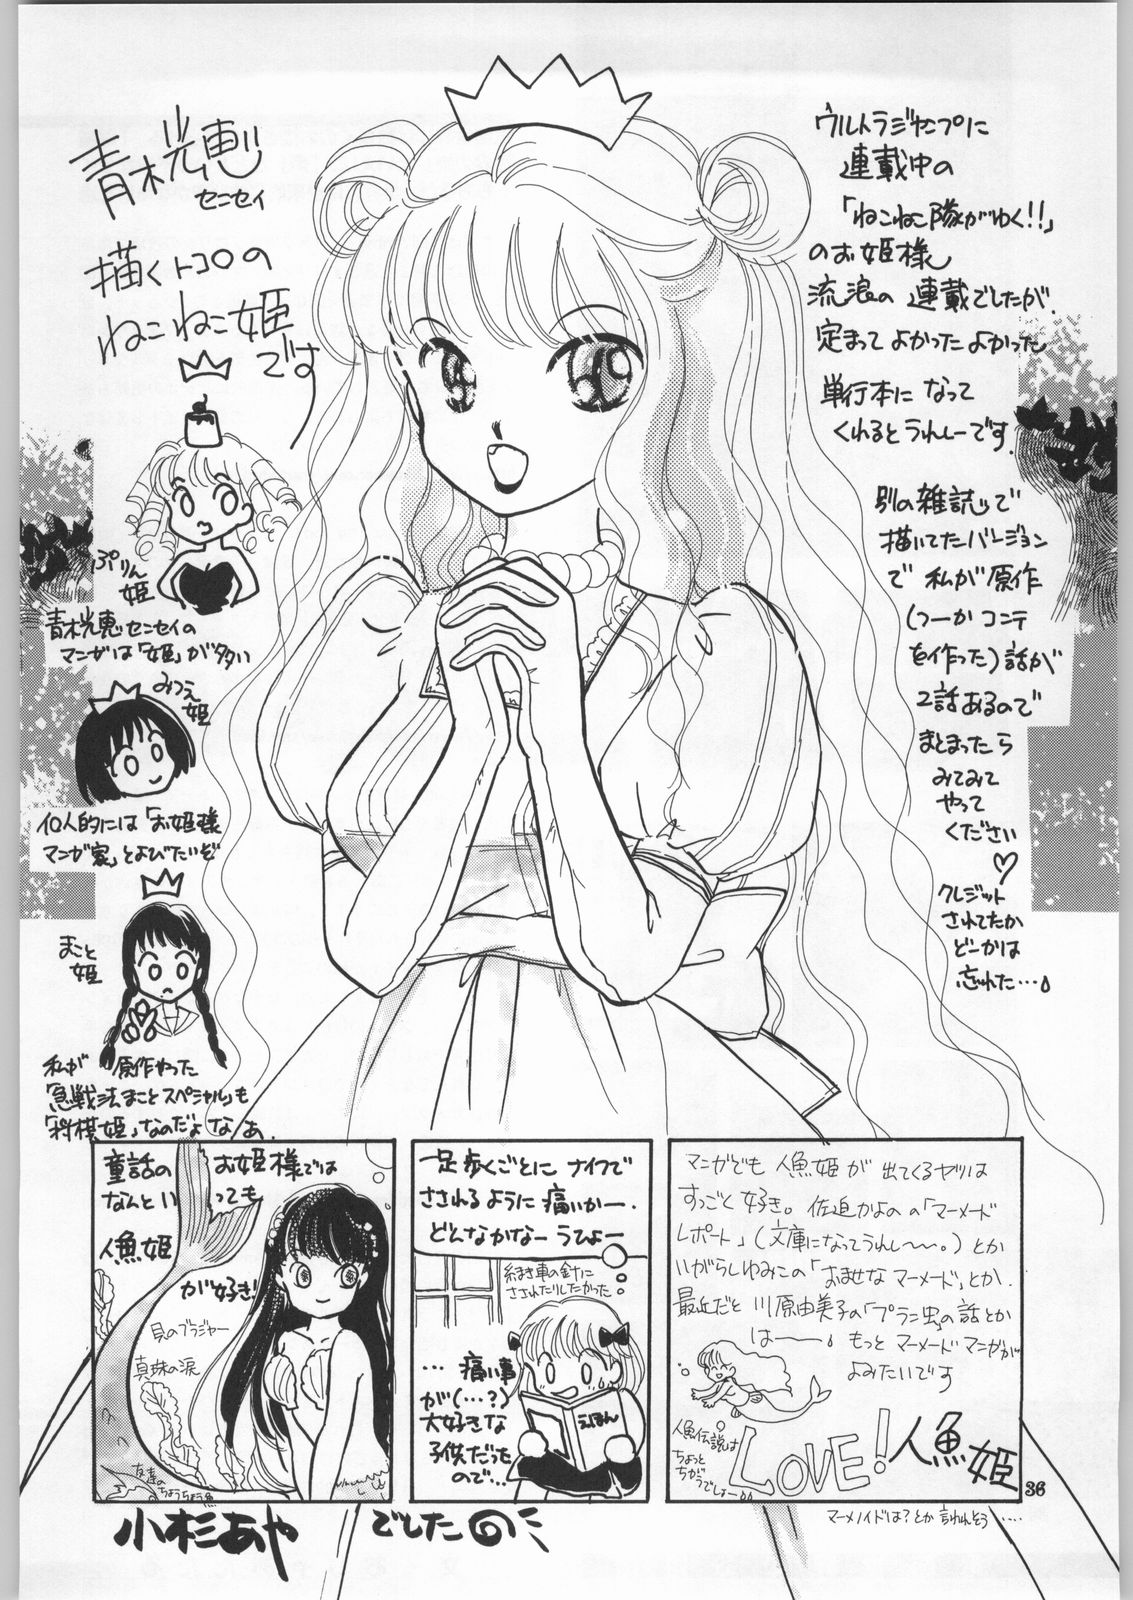 青木光恵
センセイ
描くトコロの
ねこねこ姫
です
ウルトラジャンプに
連載中の
「ねこねこ隊がゆく!!」
のお姫様
流浪の連載でしたが、
定まってよかったよかった
単行本になって
くれるとうれしーです
別の雑誌で
描いてたバージョン
で私が原作
(つーかコンテ
を作った)話が
2話あるので
まとまったら
みてみて
やって
ください
♡
クレジット
されてたか
どーかは
忘れた…
ぷりん
姫
青木光恵センセイの
マンガは「姫」が多い
みつえ
姫
個人的には「お姫様
マンガ家」とよびたいぞ
まこと
姫
私が原作やった
「急戦法まことスペシャル」も
「将棋姫」なのだよなあ
童話のお姫様では
なんといっても
人魚姫
が好き!
貝のブラジャー
真珠の涙
友達の
ちょうちょう魚
一足歩くごとにナイフで
さされるように痛いかー、
どんなかなーうひょー
糸まき車の針に
さされたりしたかった
…痛い事
が(…?)
大好きな
子供だった
ので…
えほん
マンガでも人魚姫が出てくるヤツは
すっごく好き。佐迫かよのの「マーメード
レポート」(文庫になってうれし〜〜。)とか
いがらしゆみこの「おませなマーメード」とか、
最近だと川原由美子の「プラニ虫」の話とか
はーー。もっとマーメードマンガが
よみたいです
人魚伝説は
ちょっと
ちがう
でしょー
LOVE!人魚姫
36
マーメノイドは?とか言われそう……
小杉あや でしたの